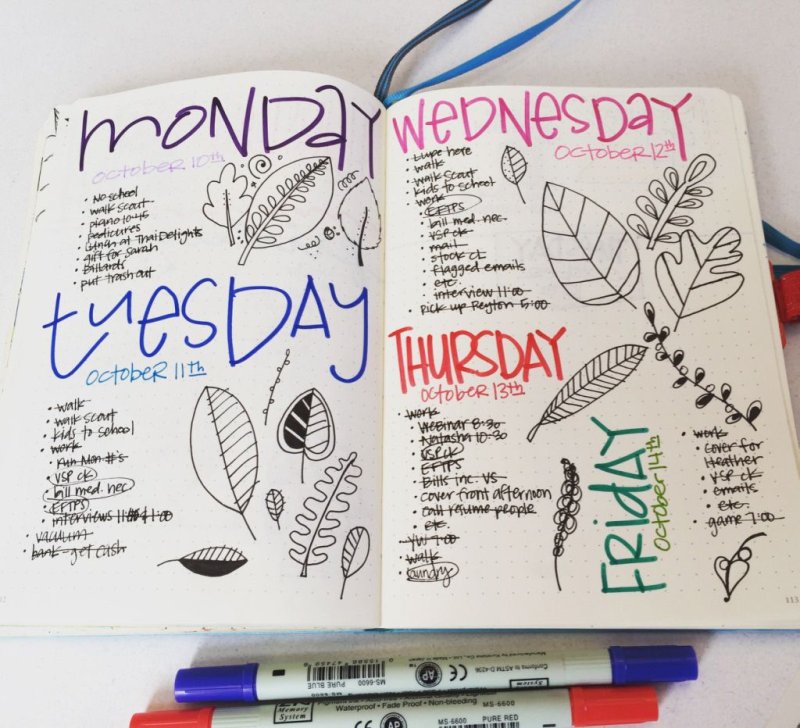 MONDAY
OCTOBER 10th
• No school
• walk scout
• piano 10:45
• pedicures
• Lunch at Thai Delights
• gift for Sarah
• billards
• put trash out
tuesDAY
OCTOBER 11th
• walk
• walk scout
• kids to school
• work
• run Mon #'s
• VSP ck
• bill med. nec
• EFTPS
• interviews 1:00
• vaculum
• bank - get cash
WEDNESDAY
OCTOBER 12th
here
• walk
• walk scout
• kids to school
• work
• EFTPS
• bill med. nec.
• VSP ck
• mail
• stock CL
• flagged emails
• etc.
• interview 11:00
• pick up Peyton 5:00
THURSDAY
OCTOBER 13th
• work
• Webinar 8:30
• Natasha 10:30
• VSP ck
• EFTPS
• Bills inc. VS
• cover front afternoon
• call resume people
• etc.
• YW 7:00
• walk
• laundry
FRIDAY
OCTOBER 14th
• work
• cover for
Heather
• VSP ck
• emails
• etc.
• game 7:00
113
MS-6600 PURE BLUE
Conforms to ASTM D-4236
AP
CE
System
Memory System
Waterproof • Fade Proof • Non-bleeding
MS-6600
AP
CE
MS-6600 PURE RED
System